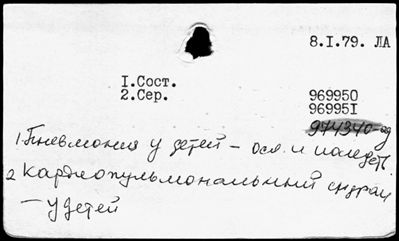 8.I.79. ЛА
I.Сост.
2.Сер. 969950
969951
974340-ад
1. Пневмония у детей – осл. и последств.
2 Кардиопульмональный синдром
– у детей